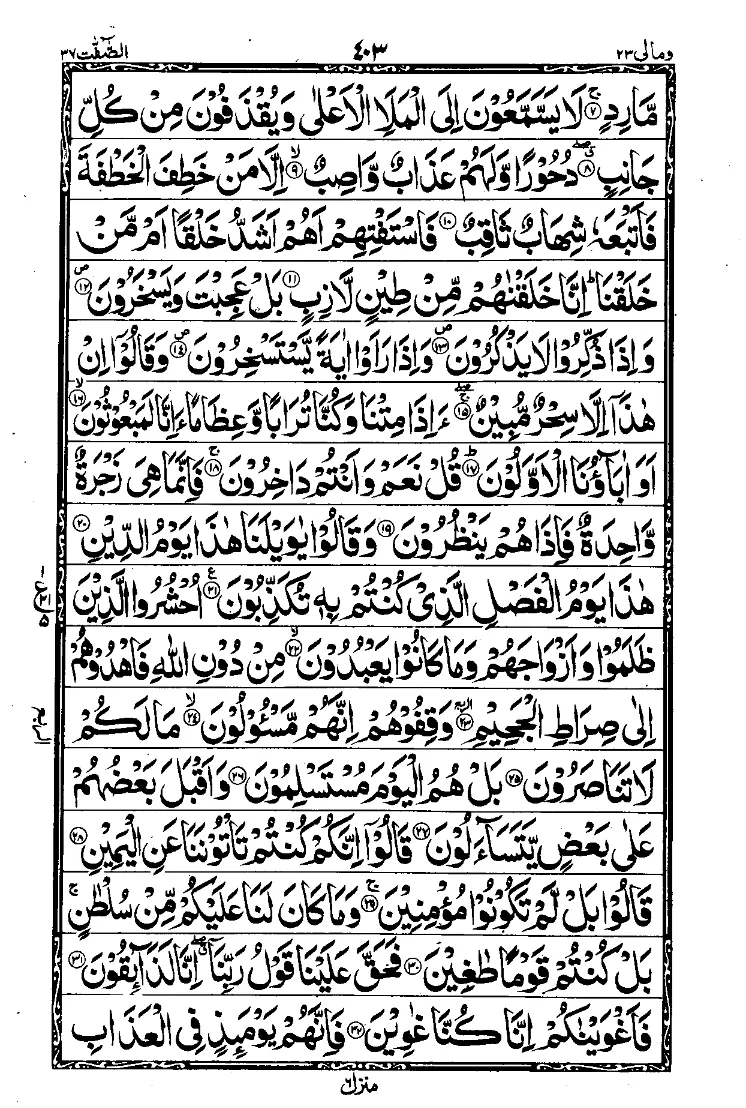 ومالی ۲۳ ۴۰۳ الصّٰفّٰت ۳۷
مَّارِدٍ ۚ﴿۷﴾ لَا یَسَّمَّعُوْنَ اِلَی الْمَلَاِ الْاَعْلٰی وَیُقْذَفُوْنَ مِنْ كُلِّ
جَانِبٍ ﴿۸﴾ دُحُوْرًا وَّلَهُمْ عَذَابٌ وَّاصِبٌ ۙ﴿۹﴾ اِلَّا مَنْ خَطِفَ الْخَطْفَةَ
فَاَتْبَعَهٗ شِهَابٌ ثَاقِبٌ ﴿۱۰﴾ فَاسْتَفْتِهِمْ اَهُمْ اَشَدُّ خَلْقًا اَمْ مَّنْ
خَلَقْنَا ؕ اِنَّا خَلَقْنٰهُمْ مِّنْ طِیْنٍ لَّازِبٍ ﴿۱۱﴾ بَلْ عَجِبْتَ وَیَسْخَرُوْنَ ۪﴿۱۲﴾
وَاِذَا ذُكِّرُوْا لَا یَذْكُرُوْنَ ۪﴿۱۳﴾ وَاِذَا رَاَوْا اٰیَةً یَّسْتَسْخِرُوْنَ ۪﴿۱۴﴾ وَقَالُوْۤا اِنْ
هٰذَاۤ اِلَّا سِحْرٌ مُّبِیْنٌ ﴿۱۵﴾ ءَاِذَا مِتْنَا وَكُنَّا تُرَابًا وَّعِظَامًا ءَاِنَّا لَمَبْعُوْثُوْنَ ۙ﴿۱۶﴾
اَوَ اٰبَآؤُنَا الْاَوَّلُوْنَ ؕ﴿۱۷﴾ قُلْ نَعَمْ وَاَنْتُمْ دَاخِرُوْنَ ۚ﴿۱۸﴾ فَاِنَّمَا هِیَ زَجْرَةٌ
وَّاحِدَةٌ فَاِذَا هُمْ یَنْظُرُوْنَ ﴿۱۹﴾ وَقَالُوْا یٰوَیْلَنَا هٰذَا یَوْمُ الدِّیْنِ ﴿۲۰﴾
هٰذَا یَوْمُ الْفَصْلِ الَّذِیْ كُنْتُمْ بِهٖ تُكَذِّبُوْنَ ﴿۲۱﴾ ع اُحْشُرُوا الَّذِیْنَ
ظَلَمُوْا وَاَزْوَاجَهُمْ وَمَا كَانُوْا یَعْبُدُوْنَ ۙ﴿۲۲﴾ مِنْ دُوْنِ اللّٰهِ فَاهْدُوْهُمْ
اِلٰی صِرَاطِ الْجَحِیْمِ ﴿۲۳﴾ وَقِفُوْهُمْ اِنَّهُمْ مَّسْـُٔوْلُوْنَ ۙ﴿۲۴﴾ مَا لَكُمْ
لَا تَنَاصَرُوْنَ ﴿۲۵﴾ بَلْ هُمُ الْیَوْمَ مُسْتَسْلِمُوْنَ ﴿۲۶﴾ وَاَقْبَلَ بَعْضُهُمْ
عَلٰی بَعْضٍ یَّتَسَآءَلُوْنَ ﴿۲۷﴾ قَالُوْۤا اِنَّكُمْ كُنْتُمْ تَاْتُوْنَنَا عَنِ الْیَمِیْنِ ﴿۲۸﴾
قَالُوْا بَلْ لَّمْ تَكُوْنُوْا مُؤْمِنِیْنَ ۚ﴿۲۹﴾ وَمَا كَانَ لَنَا عَلَیْكُمْ مِّنْ سُلْطٰنٍ ۚ
بَلْ كُنْتُمْ قَوْمًا طٰغِیْنَ ﴿۳۰﴾ فَحَقَّ عَلَیْنَا قَوْلُ رَبِّنَاۤ اِنَّا لَذَآئِقُوْنَ ﴿۳۱﴾
فَاَغْوَیْنٰكُمْ اِنَّا كُنَّا غٰوِیْنَ ﴿۳۲﴾ فَاِنَّهُمْ یَوْمَئِذٍ فِی الْعَذَابِ
منزل ۶